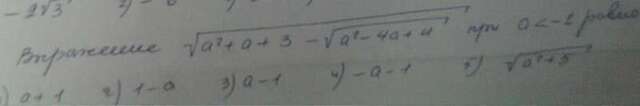 Выражение √(a²+a+3 - √(a²-4a+4)) при a<-2 равно
1) a+1 2) 1-a 3) a-1 4) -a-1 5) √(a²+5)